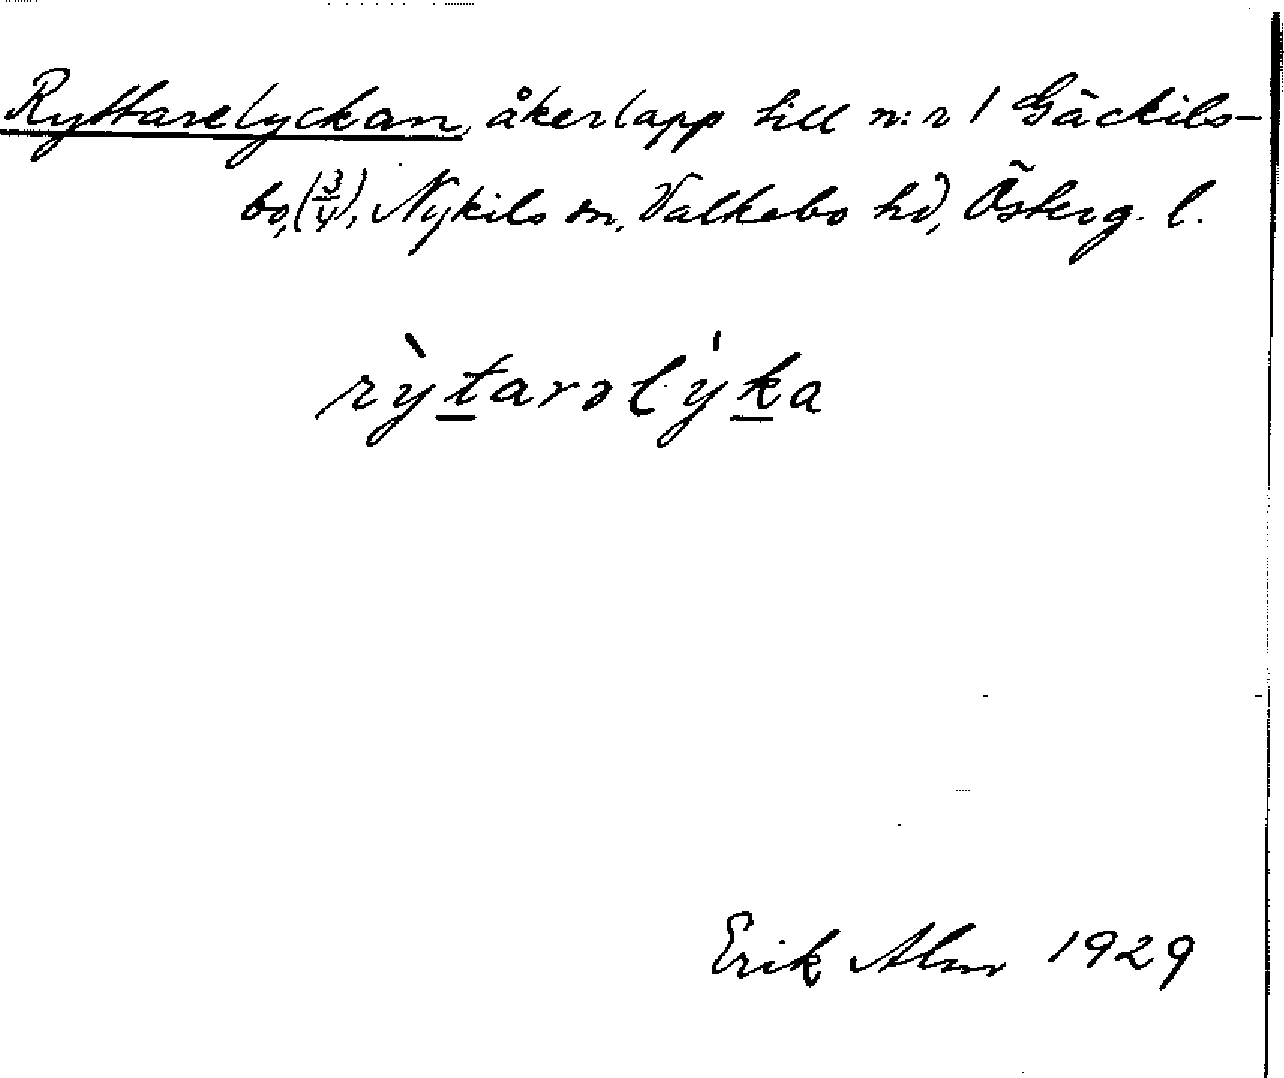 Ryttarelyckan, åkerlapp till n:r 1 Gäckils-
bo, (3/4), Nykils sn, Valkebo hd, Österg. l.
rỳtarəlýka
Erik Alm 1929